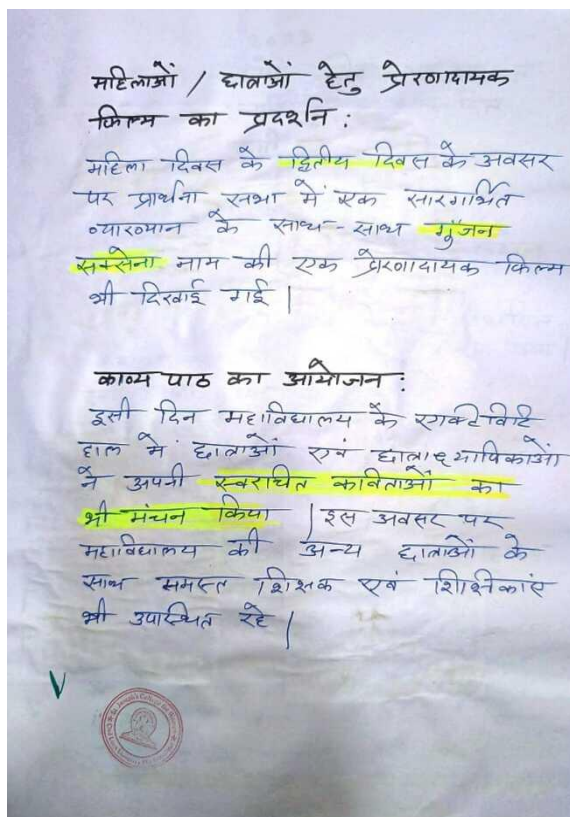 महिलाओं / छात्राओं हेतु प्रेरणादायक
फिल्म का प्रदर्शन :
महिला दिवस के द्वितीय दिवस के अवसर
पर प्रार्थना सभा में एक सारगर्भित
व्याख्यान के साथ-साथ गुंजन
सक्सेना नाम की एक प्रेरणादायक फिल्म
भी दिखाई गई |
काव्य पाठ का आयोजन :
इसी दिन महाविद्यालय के एक्टीविटि
हाल में छात्राओं एवं छात्राध्यापिकाओं
ने अपनी स्वरचित कविताओं का
भी मंचन किया | इस अवसर पर
महाविद्यालय की अन्य छात्राओं के
साथ समस्त शिक्षक एवं शिक्षिकाएं
भी उपस्थित रहे |